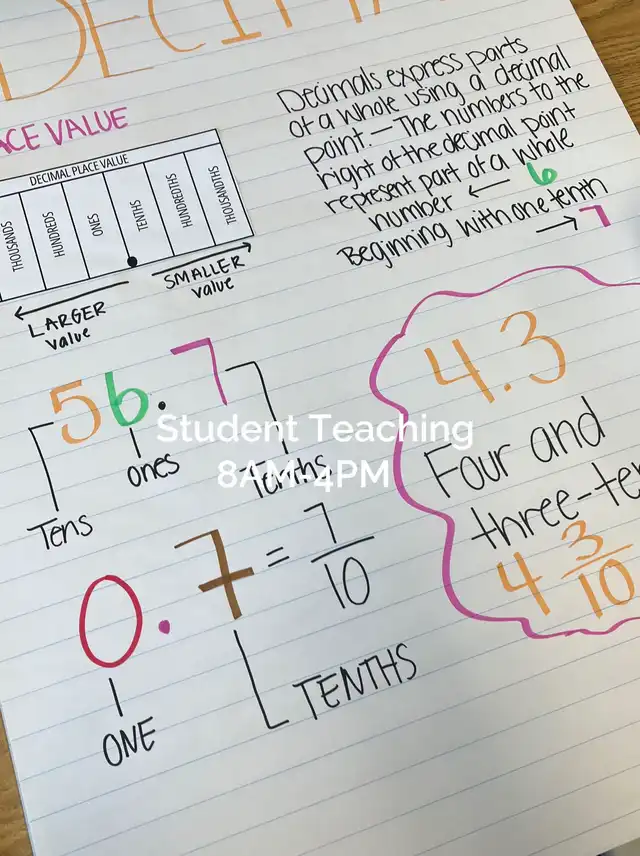 DECIMA
ACE VALUE
DECIMAL PLACE VALUE
THOUSANDS
HUNDREDS
ONES
TENTHS
HUNDREDTHS
THOUSANDTHS
LARGER
value
SMALLER
value
Decimals express parts
of a whole using a decimal
point. – The numbers to the
right of the decimal point
represent part of a whole
number ← 6
Beginning with one tenth
→ 7
56.7
Tens
ones
Tenths
Student Teaching
8AM-4PM
0.7 = 7/10
ONE
TENTHS
4.3
Four and
three-te
4 3/10